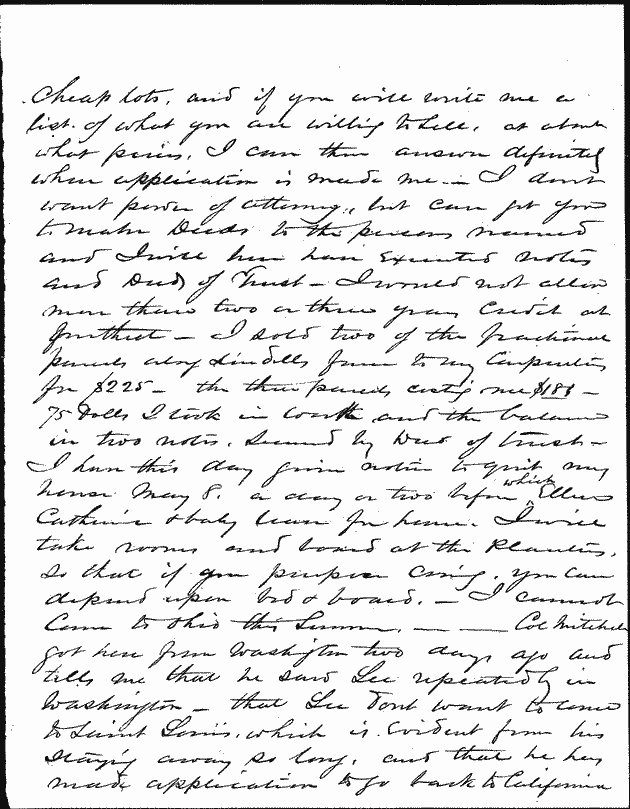 cheap lots, and if you will write me a
list of what you are willing to sell, at about
what prices, I can then answer definitely
when application is made me — I don't
want power of attorney, but can get you
to make Deeds to the persons named
and I will here have executed notes
and Deeds of Trust — I would not allow
more than two or three years credit at
furthest — I sold two of the fractional
parcels along Lindells fence to my Carpenters
for $225 — the three parcels costing me $188 —
75 Dolls I took in work and the balance
in two notes, secured by Deed of trust —
I have this day given notice to quit my
house May 8. a day or two before which Ellen
Catherine & baby leave for home. I will
take rooms and board at the Planters,
so that if you propose coming, you can
depend upon bed & board. — I cannot
come to Ohio this Summer. — — Col Mitchell
got here from Washington two days ago and
tells me that he saw Lee repeatedly in
Washington — that Lee dont want to come
to Saint Louis, which is evident from his
staying away so long, and that he has
made application to go back to California